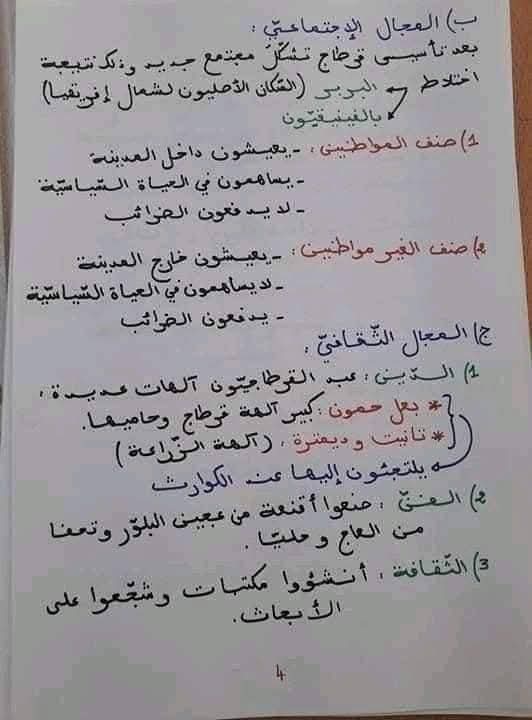 ب) المجال الإجتماعيّ :
بعد تأسيس قرطاج تشكّل مجتمع جديد وذلك نتيجة
اختلاط البربر (السّكان الأصليون لشمال إفريقيا)
بالفينيقيّون
1) صنف المواطنين : - يعيشون داخل المدينة
- يساهمون في الحياة السّياسيّة
- لا يدفعون الضرائب
2) صنف الغير مواطنين : - يعيشون خارج المدينة
- لا يساهمون في الحياة السّياسيّة
- يدفعون الضرائب
ج) المجال الثّقافيّ :
1) الدّيني : عبد القرطاجيّون آلهات عديدة :
* بعل حمون : كبير آلهة قرطاج وحاميها.
* تانيت و ديمترة : (آلهة الزّراعة)
يلتجئون إليها عند الكوارث
2) الفنيّ : صنعوا أقنعة من عجين البلّور وتحفا
من العاج و حليّا .
3) الثّقافة : أنشؤوا مكتبات وشجّعوا على
الأبحاث.
4